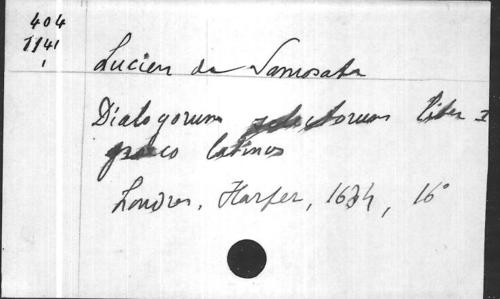 404
1141
1
Lucien de Samosate
Dialogorum selectorum liber I
graeco latinus
Londres, Harper, 1634, 16°